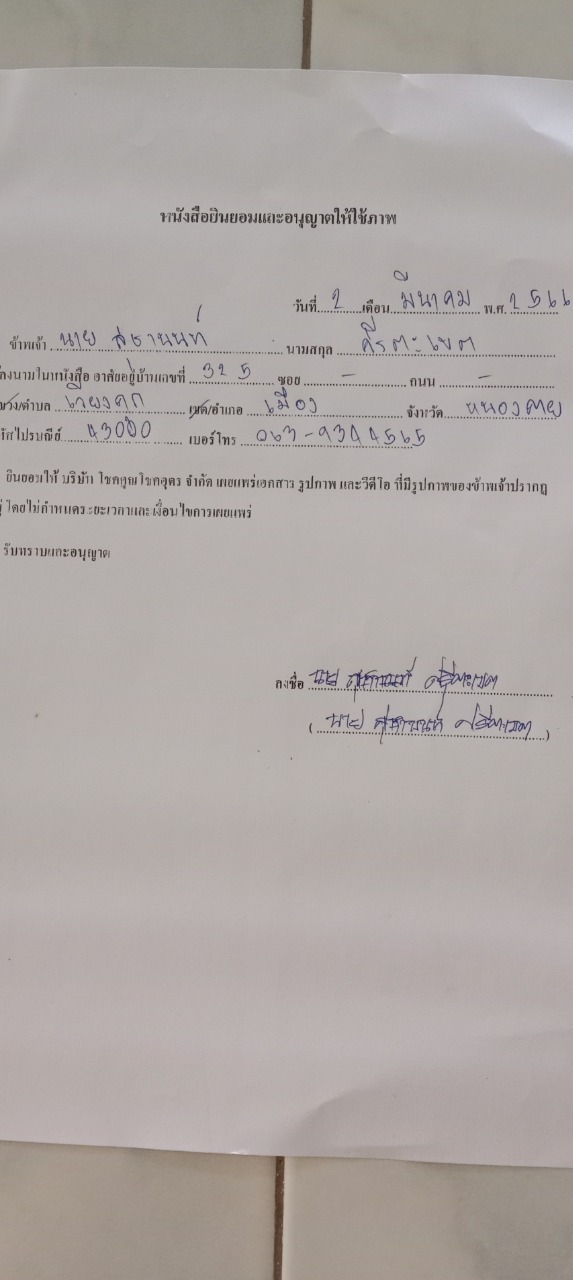 หนังสือยินยอมและอนุญาตให้ใช้ภาพ
วันที่ 2 เดือน มีนาคม พ.ศ. 2566
ข้าพเจ้า นาย นามสกุล
ลงนามในหนังสือ อาศัยอยู่บ้านเลขที่ 325 ซอย - ถนน -
แขวง/ตำบล เวียงคุก เขต/อำเภอ เมือง จังหวัด หนองคาย
รหัสไปรษณีย์ 43000 เบอร์โทร
ยินยอมให้ บริษัท โชคคูณโชคอุดร จำกัด เผยแพร่เอกสาร รูปภาพ และวีดีโอ ที่มีรูปภาพของข้าพเจ้าปรากฏ
โดยไม่กำหนดระยะเวลาและเงื่อนไขการเผยแพร่
รับทราบและอนุญาต
ลงชื่อ นาย
( นาย )